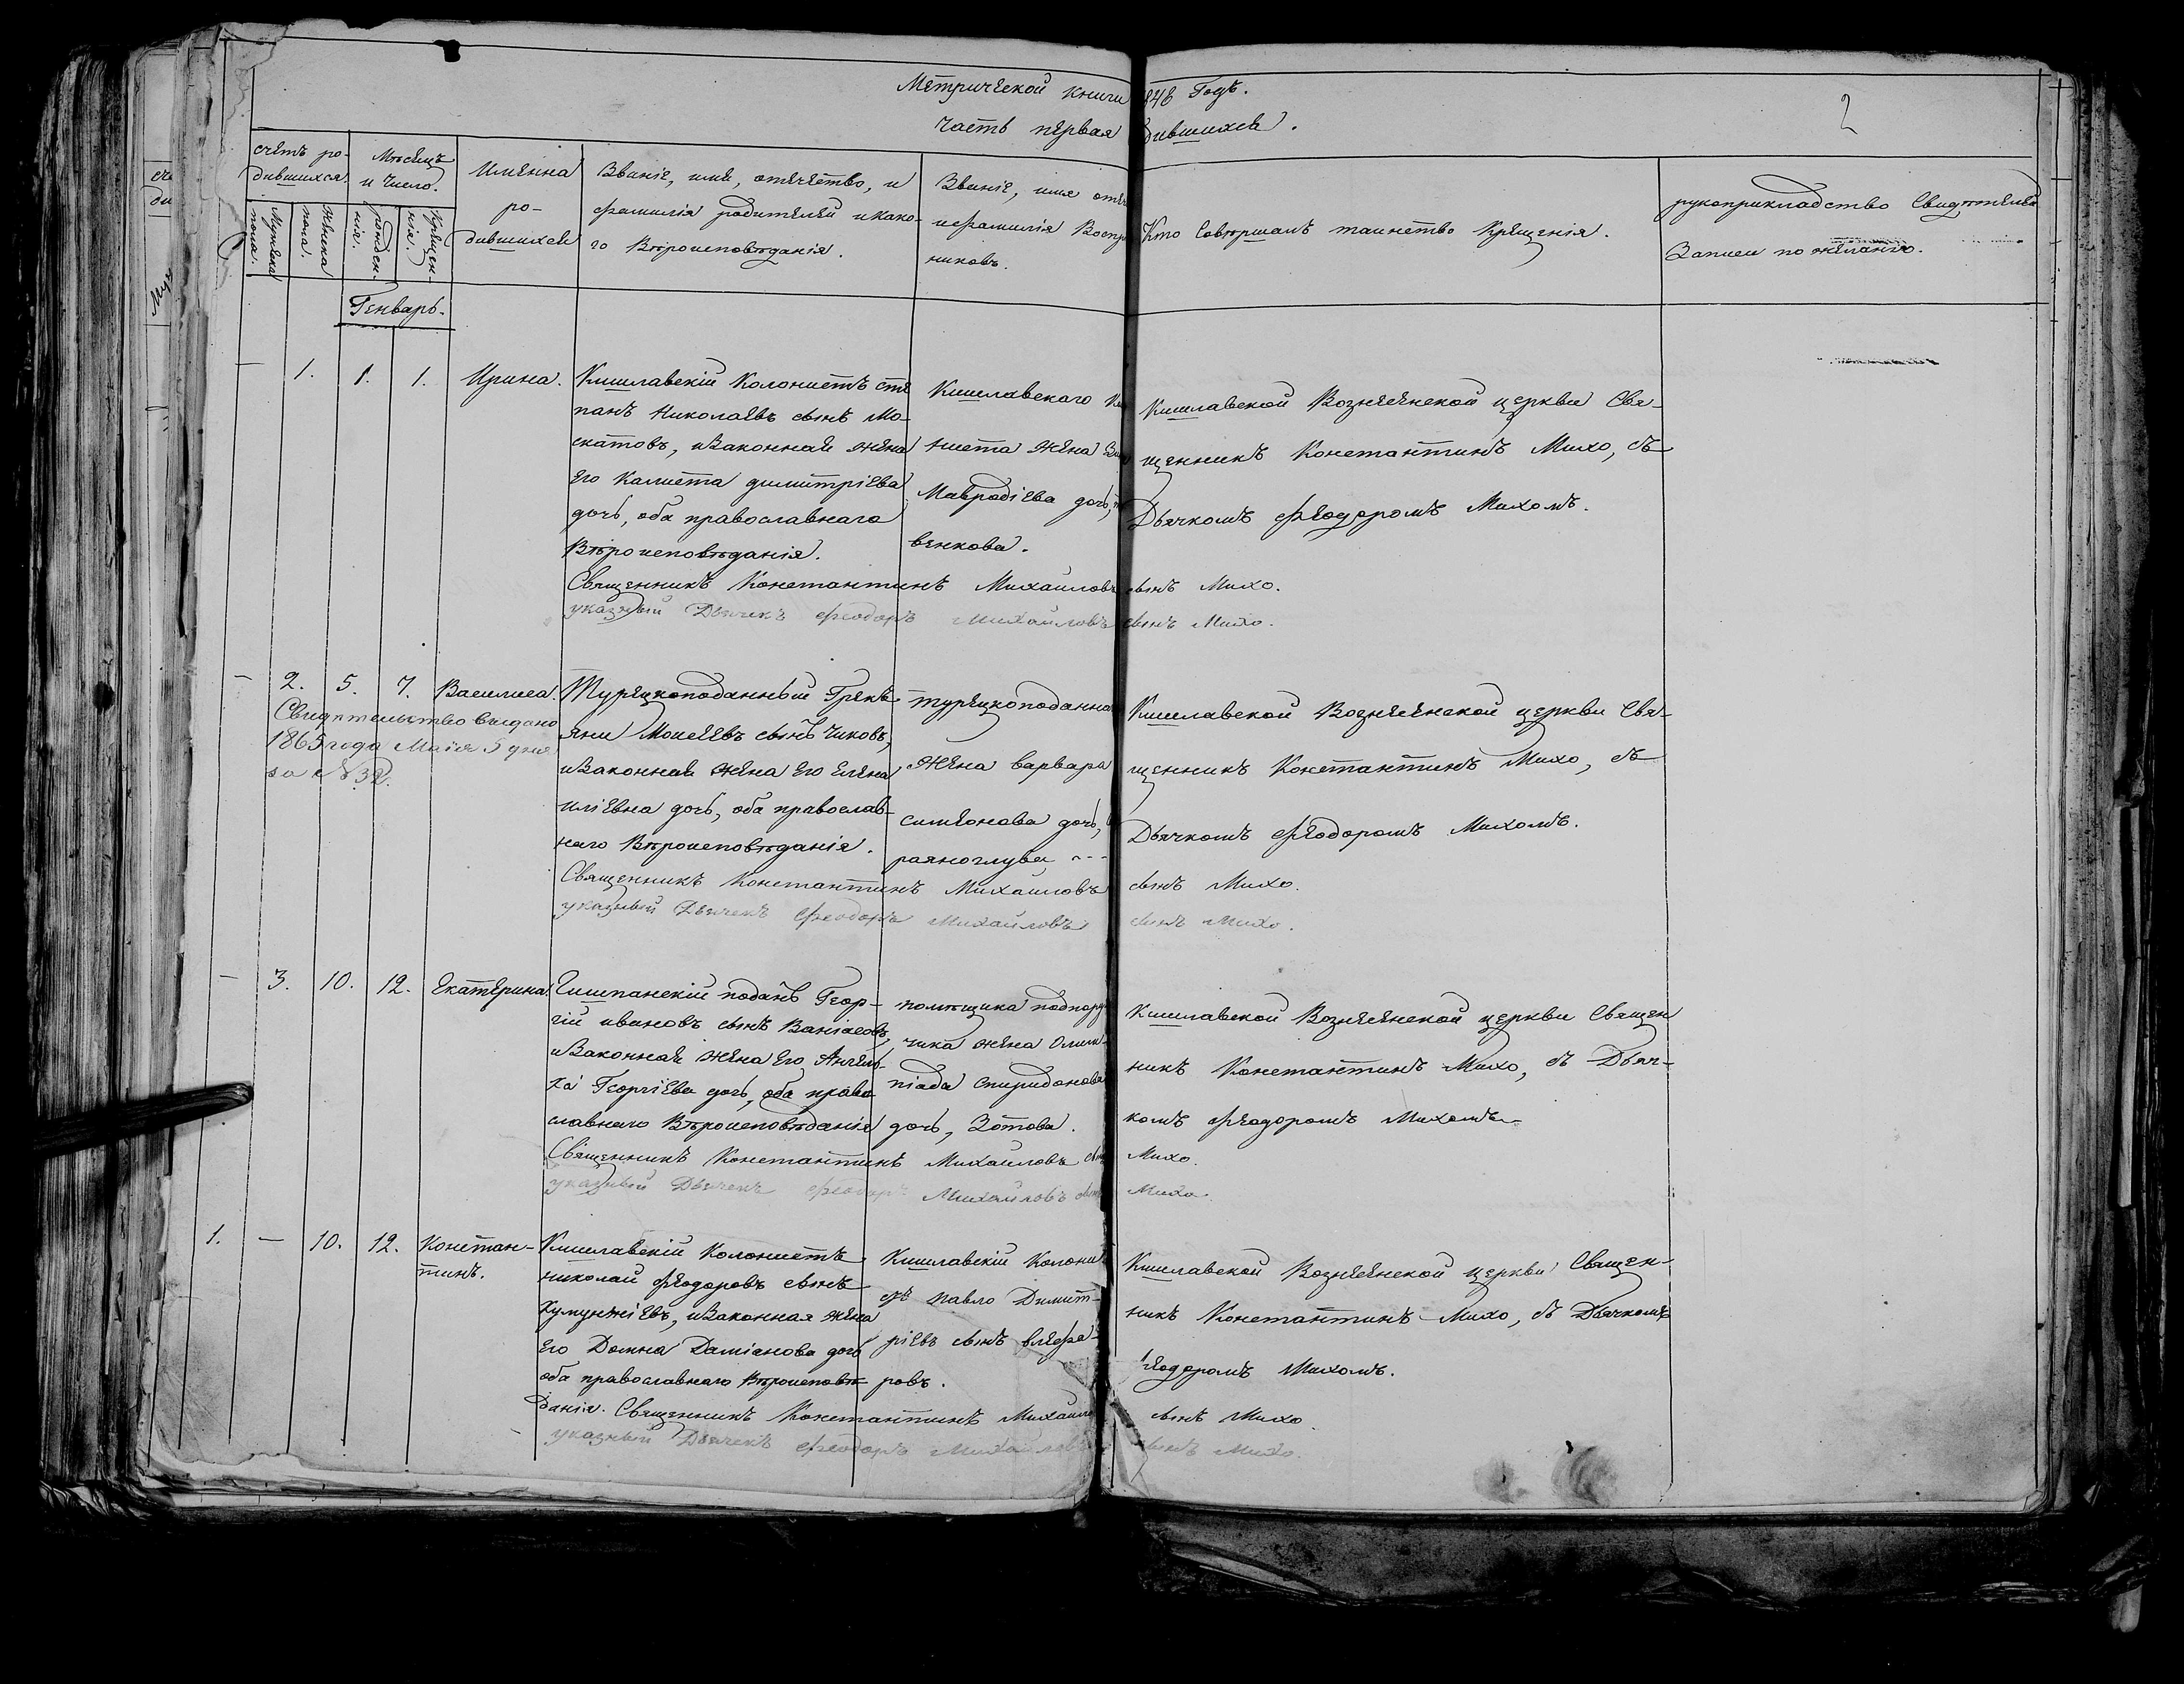 Метрической книги 848 Годъ.
Часть первая дившихся.
2
счетъ ро-
дившихся.
Мужеска
пола.
Женска
пола.
Мѣсяцъ
и число.
рожден-
нія.
крещен-
нія.
Имянна
ро-
дившихся
Званіе, имя, отечество, и
фамилія родителей и како-
го Вѣроисповѣданія.
Званіе, имя отеч
и фамилія Воспр
никовъ.
Кто Совершалъ таинство Крещенія.
рукоприкладство Свидѣтелей
Записи по желанію.
Генварь.
— 1. 1. 1. Ирина.
Кишлавскій Колонистъ сте
панъ Николаевъ сынъ Мо-
скатовъ, и Законная жена
Его Калиста димитріева
дочь, оба православнаго
Вѣроисповѣданія.
Кишлавскаго К
ниста жена
Мавродіева дочь,
венкова.
Кишлавской Вознесенской церкви Свя-
щенникъ Константинъ Михо, съ
Дьячкомъ Феодоромъ Михомъ.
Священникъ Константинъ Михаиловъ сынъ Михо.
указный Дьячекъ Феодоръ Михайловъ сынъ Михо.
— 2. 5. 7. Василиса.
Свидѣтельство выдано
1865 года Маія 5 дня
за №32.
Турецкоподанный Грекъ
Яни Моисеевъ сынъ Чиковъ,
и Законная жена Его Елена
иліевна дочь, оба православ-
наго Вѣроисповѣданія.
турецкоподанна
жена варвара
симеонова дочь,
раяноглува ---
Кишлавской Вознесенской церкви Свя-
щенникъ Константинъ Михо, съ
Дьячкомъ Феодоромъ Михомъ.
Священникъ Константинъ Михаиловъ сынъ Михо.
указный Дьячекъ Феодоръ Михайловъ сынъ Михо.
— 3. 10. 12. Екатерина.
Гишпанскій поданъ Геор-
гій ивановъ сынъ Ваніасовъ,
и Законная жена Его Ангель-
ха Георгіева дочь, оба право
славнаго Вѣроисповѣданія
помѣщика подпору
чика жена Олим-
піада Спиридонова
дочь, Зотова.
Кишлавской Вознесенской церкви Священ
никъ Константинъ Михо, съ Дьяч-
комъ Феодоромъ Михомъ
Священникъ Константинъ Михаиловъ сынъ Михо.
указный Дьячекъ Феодоръ Михайловъ сынъ Михо.
1. — 10. 12. Констан-
тинъ.
Кишлавскій Колонистъ
николай Феодоровъ сынъ
Хумунжіевъ, и Законная жена
Его Домна Даміанова дочь
оба православнаго Вѣроисповѣ
данія.
Кишлавскій Колони
стъ Павло Димит-
ріевъ сынъ влефе-
ровъ.
Кишлавской Вознесенской церкви Священ-
никъ Константинъ Михо, съ Дьячкомъ
Феодоромъ Михомъ.
Священникъ Константинъ Михаило сынъ Михо
указный Дьячекъ Феодоръ Михайловъ сынъ Михо.